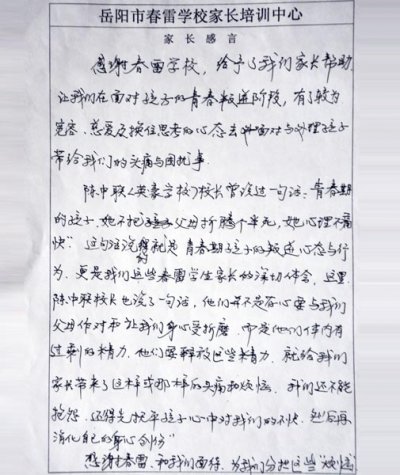 岳阳市春雷学校家长培训中心
家长感言
感谢春雷学校，给予了我们家长帮助
让我们在面对孩子的青春叛逆阶段，有了较为
宽容、慈爱及换位思考的心态去面对与处理孩子
带给我们的头痛与困扰事
陈中联（英豪学校）校长曾说过一句话：青春期
的孩子，她不把父母折腾个半死，她心理不痛
快”这句话说的就是青春期孩子的叛逆心态与行
为，更是我们这些春雷学生家长的深切体会，这里
陈中联校长也说了一句话，他们并不是存心要与我们
父母作对而让我们身心受折磨，而是他们体内有
过剩的精力，他们要释放这些精力，就给我们
家长带来了这样或那样的头痛和烦恼，我们还不能
抱怨，还得先把平孩子心中对我们的不快，然后再
消化自己的身心创伤”
感谢春雷，和我们面待，为我们分担这些“烦恼